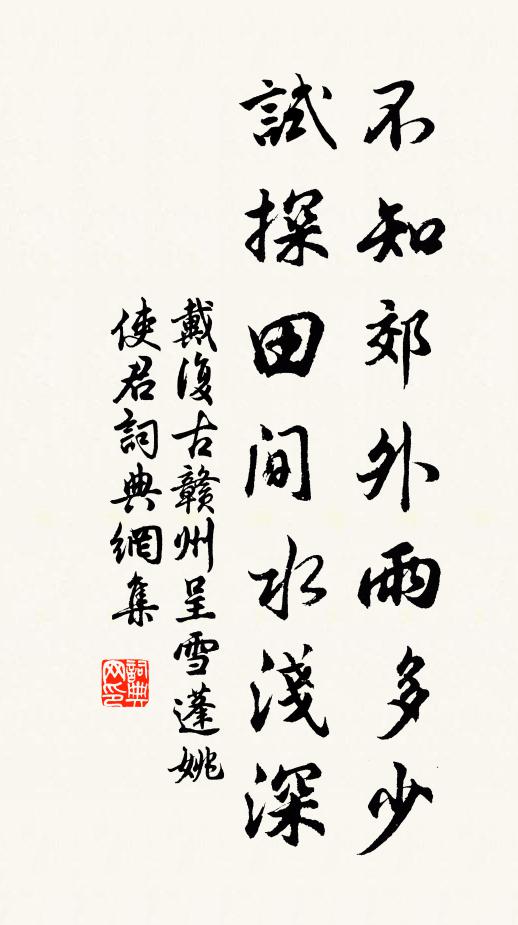 不知郊外雨多少
試探田間水淺深
戴復古贛州呈雪蓬姚
使君詞典網集
詞典网印